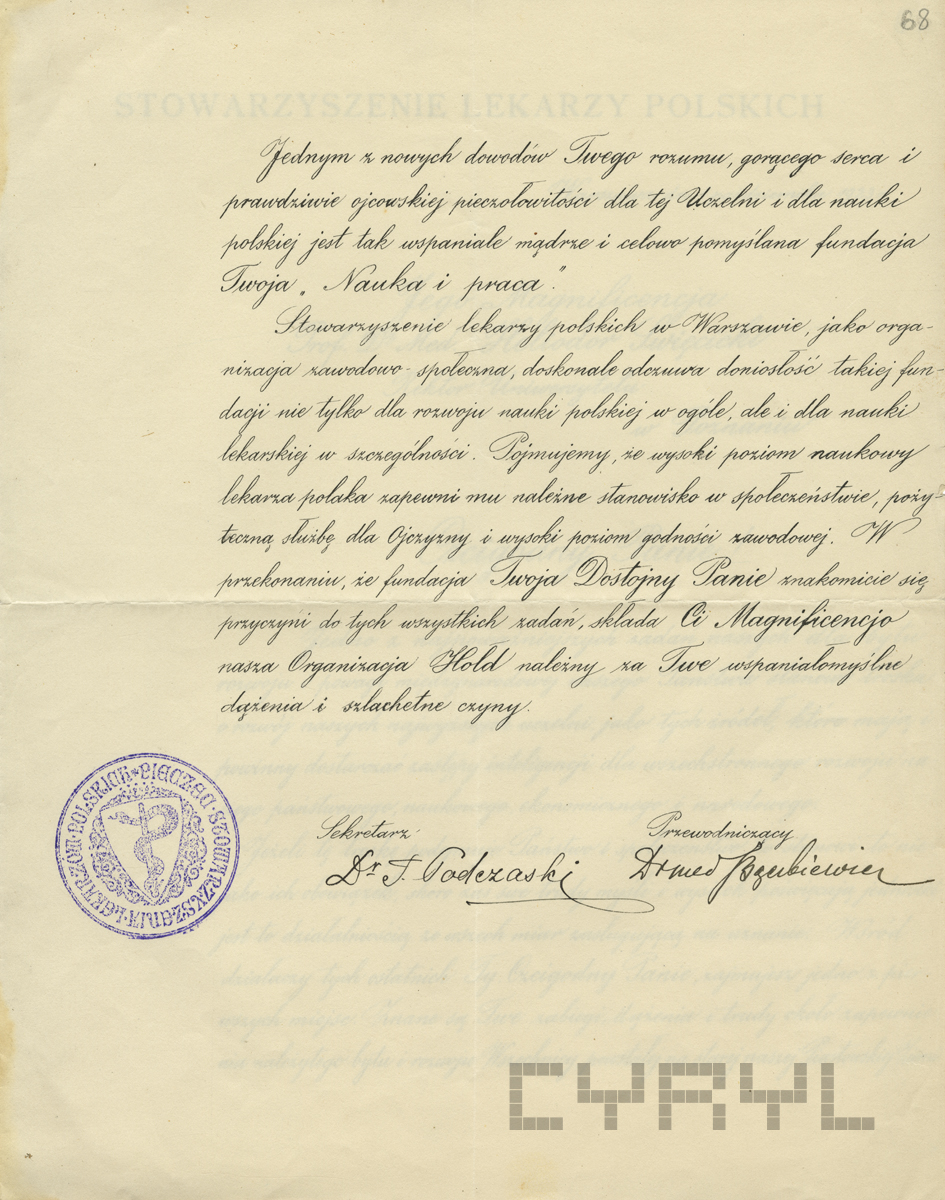 68
STOWARZYSZENIE LEKARZY POLSKICH
Jednym z nowych dowodów Twego rozumu, gorącego serca i
prawdziwie ojcowskiej pieczołowitości dla tej Uczelni i dla nauki
polskiej jest tak wspaniale mądrze i celowo pomyślana fundacja
Twoja „Nauka i praca".
Stowarzyszenie lekarzy polskich w Warszawie, jako orga-
nizacja zawodowo-społeczna, doskonale odczuwa doniosłość takiej fun-
dacji nie tylko dla rozwoju nauki polskiej w ogóle, ale i dla nauki
lekarskiej w szczególności. Pojmujemy, że wysoki poziom naukowy
lekarza polaka zapewni mu należne stanowisko w społeczeństwie, poży-
teczną służbę dla Ojczyzny i wysoki poziom godności zawodowej. W
przekonaniu, że fundacja Twoja Dostojny Panie znakomicie się
przyczyni do tych wszystkich zadań, składa Ci Magnificencjo
nasza Organizacja Hołd należny za Twe wspaniałomyślne
dążenia i szlachetne czyny.
Sekretarz Przewodniczący
Dr T. Podczaski Dr med
PIECZĘĆ STOWARZYSZENIA LEKARZÓW POLSKICH
CYRYL